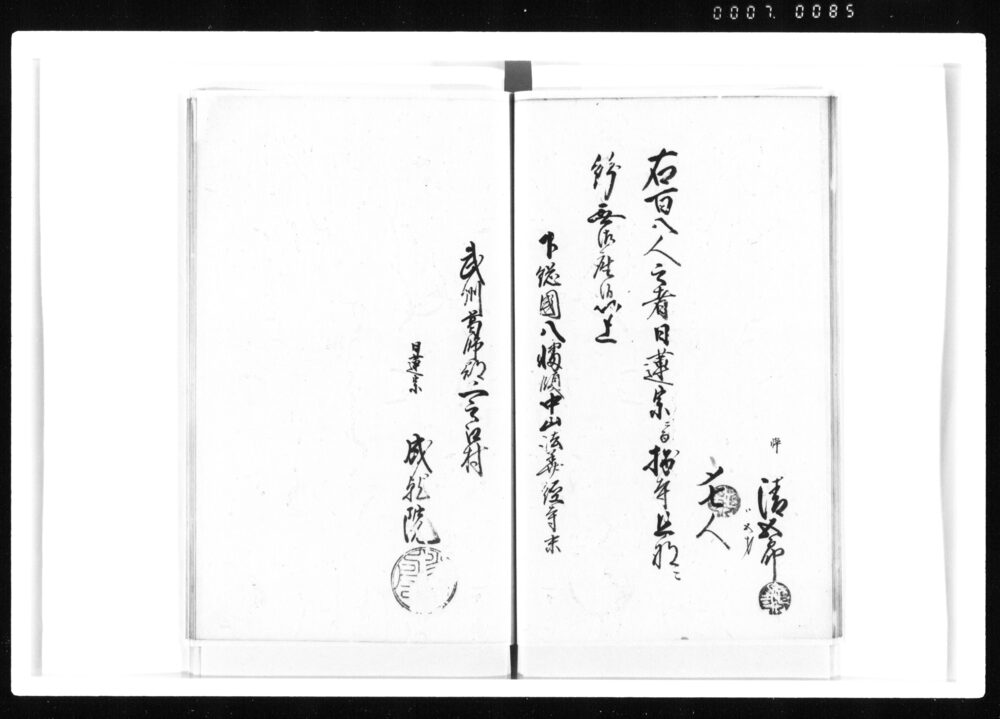 0007 0085
忰 清五郎
〆七人
右百八人之者日蓮宗ニ而拙寺旦那ニ
紛無御座候以上
下総國八幡領中山法華経寺末
武州葛飾郡二之江村
日蓮宗
成就院